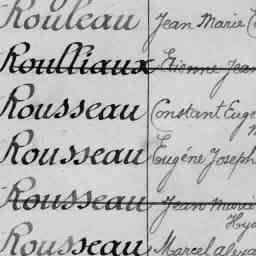 Rouleau Jean Marie
Roulliaux Etienne Jean
Rousseau Constant Euge
Rousseau Eugéne Joseph
Rousseau Jean Marie
Hya
Rousseau Marcel Alexa